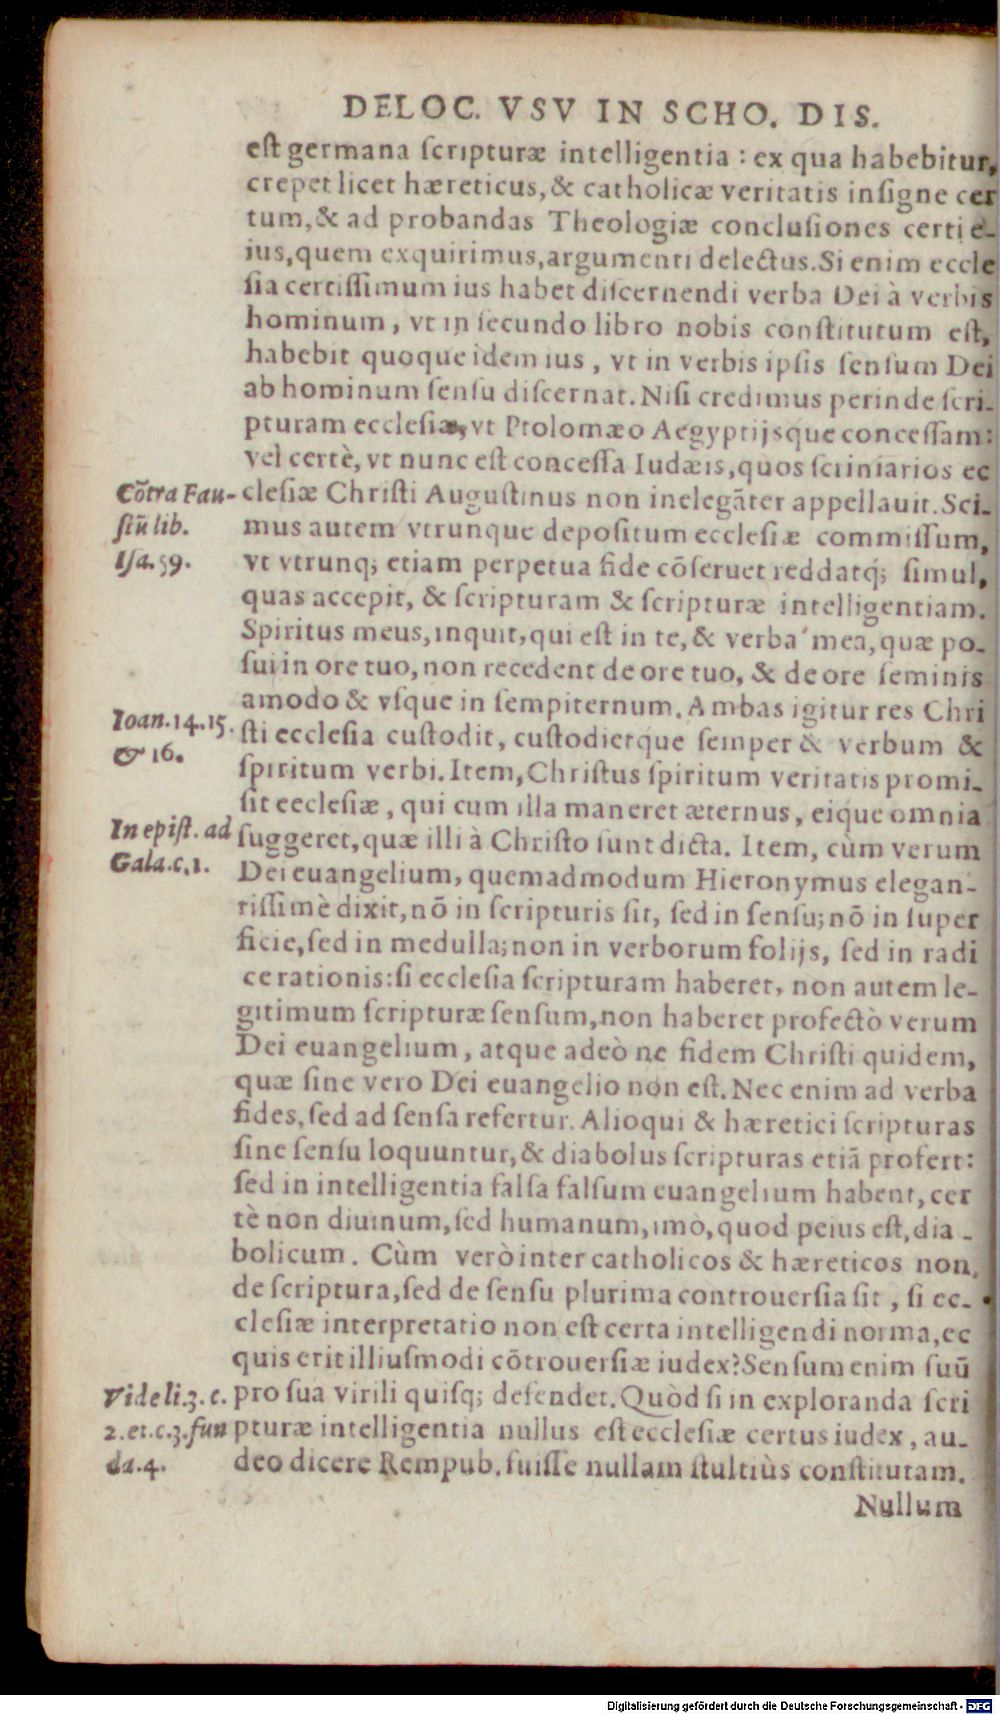 DE LOC. VSV IN SCHO. DIS.
est germana scripturæ intelligentia : ex qua habebitur,
crepet licet hæreticus, & catholicæ veritatis insigne cer
tum, & ad probandas Theologiæ conclusiones certi e-
ius, quem exquirimus, argumenti delectus. Si enim eccle
sia certissimum ius habet discernendi verba Dei à verbis
hominum, vt in secundo libro nobis constitutum est,
habebit quoque idem ius, vt in verbis ipsis sensum Dei
ab hominum sensu discernat. Nisi credimus perinde scri-
pturam ecclesiæ, vt Ptolomæo Aegyptijsque concessam:
vel certè, vt nunc est concessa Iudæis, quos scriniarios ec
Cõtra Fau-
clesiæ Christi Augustinus non inelegãter appellauit. Sci-
stũ lib.
mus autem vtrunque depositum ecclesiæ commissum,
Isa. 59.
vt vtrunq; etiam perpetua fide cõseruet reddatq́; simul,
quas accepit, & scripturam & scripturæ intelligentiam.
Spiritus meus, inquit, qui est in te, & verba mea, quæ po-
sui in ore tuo, non recedent de ore tuo, & de ore seminis
amodo & vsque in sempiternum. Ambas igitur res Chri
Ioan. 14. 15.
sti ecclesia custodit, custodietque semper & verbum &
& 16.
spiritum verbi. Item, Christus spiritum veritatis promi-
sit ecclesiæ, qui cum illa maneret æternus, eique omnia
In epist. ad
suggeret, quæ illi à Christo sunt dicta. Item, cùm verum
Gala. c. 1.
Dei euangelium, quemadmodum Hieronymus elegan-
tissimè dixit, nõ in scripturis sit, sed in sensu; nõ in super
ficie, sed in medulla; non in verborum folijs, sed in radi
ce rationis: si ecclesia scripturam haberet, non autem le-
gitimum scripturæ sensum, non haberet profectò verum
Dei euangelium, atque adeò ne fidem Christi quidem,
quæ sine vero Dei euangelio non est. Nec enim ad verba
fides, sed ad sensa refertur. Alioqui & hæretici scripturas
sine sensu loquuntur, & diabolus scripturas etiã profert:
sed in intelligentia falsa falsum euangelium habent, cer
tè non diuinum, sed humanum, imò, quod peius est, dia-
bolicum. Cùm verò inter catholicos & hæreticos non
de scriptura, sed de sensu plurima controuersia sit, si ec-
clesiæ interpretatio non est certa intelligendi norma, ec
quis erit illiusmodi cõtrouersiæ iudex? Sensum enim suũ
Vide li. 3. c.
pro sua virili quisq; defendet. Quòd si in exploranda scri
2. et. c. 3. fun
pturæ intelligentia nullus est ecclesiæ certus iudex, au-
da. 4.
deo dicere Rempub. fuisse nullam stultiùs constitutam.
Nullum
Digitalisierung gefördert durch die Deutsche Forschungsgemeinschaft - DFG